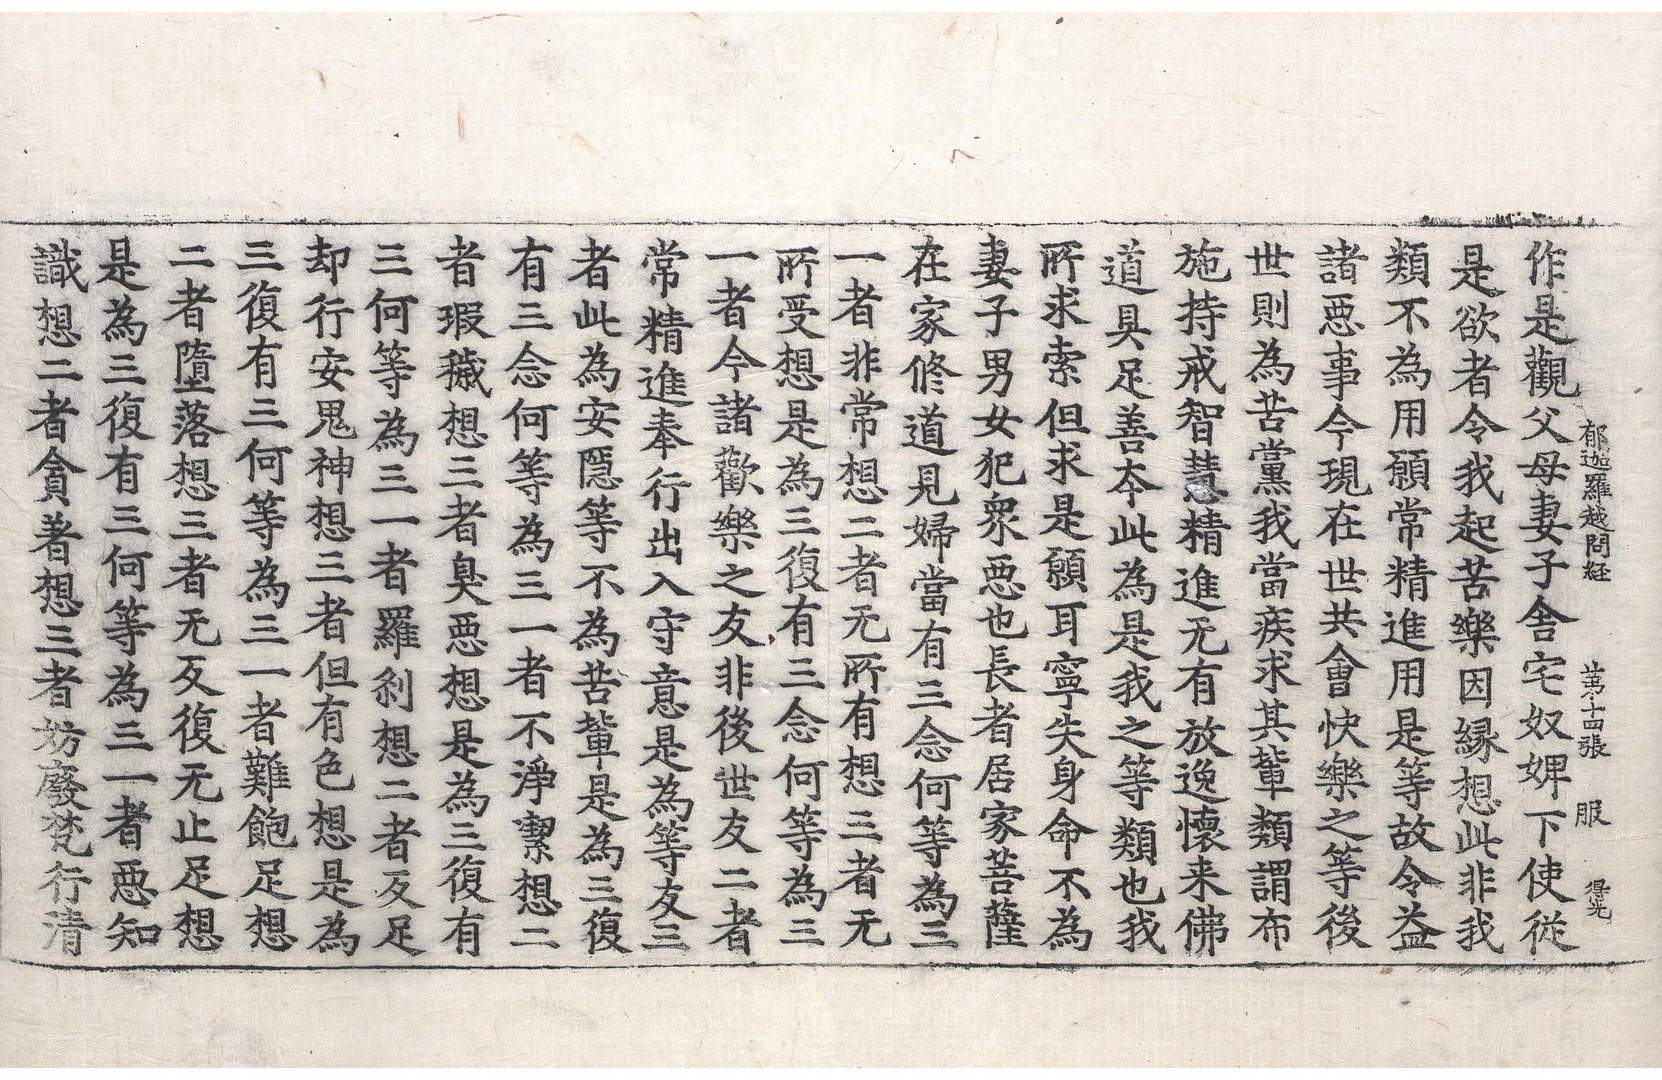 郁迦羅越問経 苐十四張 服 得光
作是觀父母妻子舍宅奴婢下使従
是欲者令我起苦樂因緣想此非我
類不為用願常精進用是等故令益
諸惡事今現在世共會快樂之等後
世則為苦黨我當疾求其輩類謂布
施持戒智慧精進无有放逸懷来佛
道具足善夲此為是我之等類也我
所求索但求是願耳寧失身命不為
妻子男女犯衆惡也長者居家菩薩
在家修道見婦當有三念何等為三
一者非常想二者无所有想三者无
所受想是為三復有三念何等為三
一者今諸歡樂之友非後世友二者
常精進奉行出入守意是為等友三
者此為安隱等不為苦輩是為三復
有三念何等為三一者不淨潔想二
者瑕穢想三者臭惡想是為三復有
三何等為三一者羅刹想二者反足
却行安鬼神想三者但有色想是為
三復有三何等為三一者難飽足想
二者墮落想三者无反復无止足想
是為三復有三何等為三一者惡知
識想二者貪著想三者妨廢梵行清